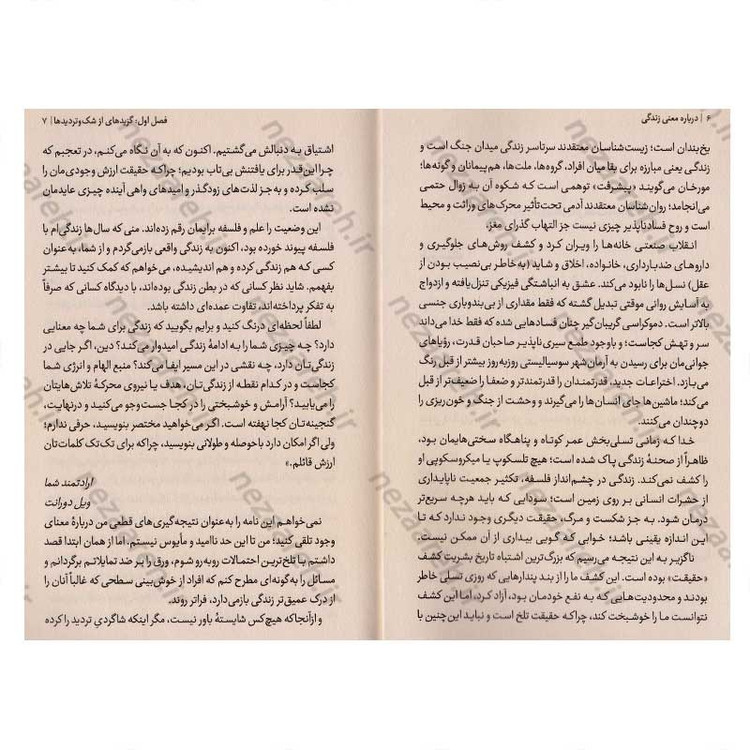 ۶ | درباره معنی زندگی
یخ‌بندان است؛ زیست‌شناسان معتقدند سرتاسر زندگی میدان جنگ است و
زندگی یعنی مبارزه برای بقا میان افراد، گروه‌ها، ملت‌ها، هم‌پیمانان و گونه‌ها؛
مورخان می‌گویند «پیشرفت» توهمی است که شکوه آن به زوال حتمی
می‌انجامد؛ روان‌شناسان معتقدند آدمی تحت‌تأثیر محرک‌های وراثت و محیط
است و روح فسادناپذیر چیزی نیست جز التهاب گذرای مغز.
انقلاب صنعتی خانه‌ها را ویران کرد و کشف روش‌های جلوگیری و
داروهای ضدبارداری، خانواده، اخلاق و شاید (به‌خاطر بی‌نصیب بودن از
عقل) نسل‌ها را نابود می‌کند. عشق به انباشتگی فیزیکی تنزل‌یافته و ازدواج
به آسایش روانی موقتی تبدیل گشته که فقط مقداری از بی‌بندوباری جنسی
بالاتر است. دموکراسی گریبان‌گیر چنان فسادهایی شده که فقط خدا می‌داند
سر و تهش کجاست؛ و باوجود طمع سیری ناپذیر صاحبان قدرت، رؤیاهای
جوانی‌مان برای رسیدن به آرمان‌شهر سوسیالیستی روزبه‌روز بیشتر از قبل رنگ
می‌بازد. اختراعات جدید، قدرتمندان را قدرتمندتر و ضعفا را ضعیف‌تر از قبل
می‌کند؛ ماشین‌ها جای انسان‌ها را می‌گیرند و وحشت از جنگ و خون‌ریزی را
دوچندان می‌کنند.
خدا که زمانی تسلی‌بخش عمر کوتاه و پناهگاه سختی‌هایمان بود،
ظاهراً از صحنهٔ زندگی پاک شده است؛ هیچ تلسکوپ یا میکروسکوپی او
را کشف نمی‌کند. زندگی در چشم‌انداز فلسفه، تکثیر جمعیت ناپایداری
از حشرات انسانی بر روی زمین است؛ سودایی که باید هرچه سریع‌تر
درمان شود. به جز شکست و مرگ، حقیقت دیگری وجود ندارد که تا
این اندازه یقینی باشد؛ خوابی که گویی بیداری از آن ممکن نیست.
ناگزیر به این نتیجه می‌رسیم که بزرگ‌ترین اشتباه تاریخ بشریت کشف
«حقیقت» بوده است. این کشف ما را از بند پندارهایی که روزی تسلی خاطر
بودند و محدودیت‌هایی که به نفع خودمان بود، آزاد کرد، اما این کشف
نتوانست ما را خوشبخت کند، چراکه حقیقت تلخ است و نباید این‌چنین با
فصل اول: گزیده‌ای از شک‌وتردیدها | ۷
اشتیاق به دنبالش می‌گشتیم. اکنون که به آن نگاه می‌کنم، در تعجبم که
چرا این‌قدر برای یافتنش بی‌تاب بودیم؛ چراکه حقیقت ارزش وجودی‌مان را
سلب کرده و به جز لذت‌های زودگذر و امیدهای واهی آینده چیزی عایدمان
نشده است.
این وضعیت را علم و فلسفه برایمان رقم زده‌اند. منی که سال‌ها زندگی‌ام با
فلسفه پیوند خورده بود، اکنون به زندگی واقعی بازمی‌گردم و از شما، به‌عنوان
کسی که هم زندگی کرده و هم اندیشیده، می‌خواهم که کمک کنید تا بیشتر
بفهمم. شاید نظر کسانی که در بطن زندگی بوده‌اند، با دیدگاه کسانی که صرفاً
به تفکر پرداخته‌اند، تفاوت عمده‌ای داشته باشد.
لطفاً لحظه‌ای درنگ کنید و برایم بگویید که زندگی برای شما چه معنایی
دارد؟ چه چیزی شما را به ادامهٔ زندگی امیدوار می‌کند؟ دین، اگر جایی در
زندگی‌تان دارد، چه نقشی در این مسیر ایفا می‌کند؟ منبع الهام و انرژی شما
کجاست و در کدام نقطه از زندگی‌تان، هدف یا نیروی محرکهٔ تلاش‌هایتان
را می‌یابید؟ آرامش و خوشبختی را در کجا جست‌وجو می‌کنید و درنهایت،
گنجینه‌تان کجا نهفته است. اگر می‌خواهید مختصر بنویسید، حرفی ندارم؛
ولی اگر امکان دارد باحوصله و طولانی بنویسید، چراکه برای تک‌تک کلمات‌تان
ارزش قائلم.»
ارادتمند شما
ویل دورانت
نمی‌خواهم این نامه را به‌عنوان نتیجه‌گیری‌های قطعی من دربارهٔ معنای
وجود تلقی کنید؛ من تا این حد ناامید و مأیوس نیستم. اما از همان ابتدا قصد
داشتم با تلخ‌ترین احتمالات روبه‌رو شوم، ورق را بر ضد تمایلاتم برگردانم و
مسائل را به‌گونه‌ای مطرح کنم که افراد از خوش‌بینی سطحی که غالباً آنان را
از درک عمیق‌تر زندگی بازمی‌دارد، فراتر روند.
و ازآنجاکه هیچ‌کس شایستهٔ باور نیست، مگر اینکه شاگردیِ تردید را کرده
nezareh.ir